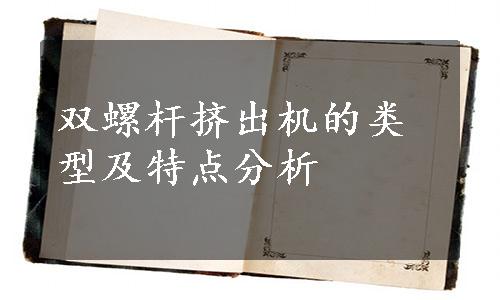 双螺杆挤出机的类
型及特点分析